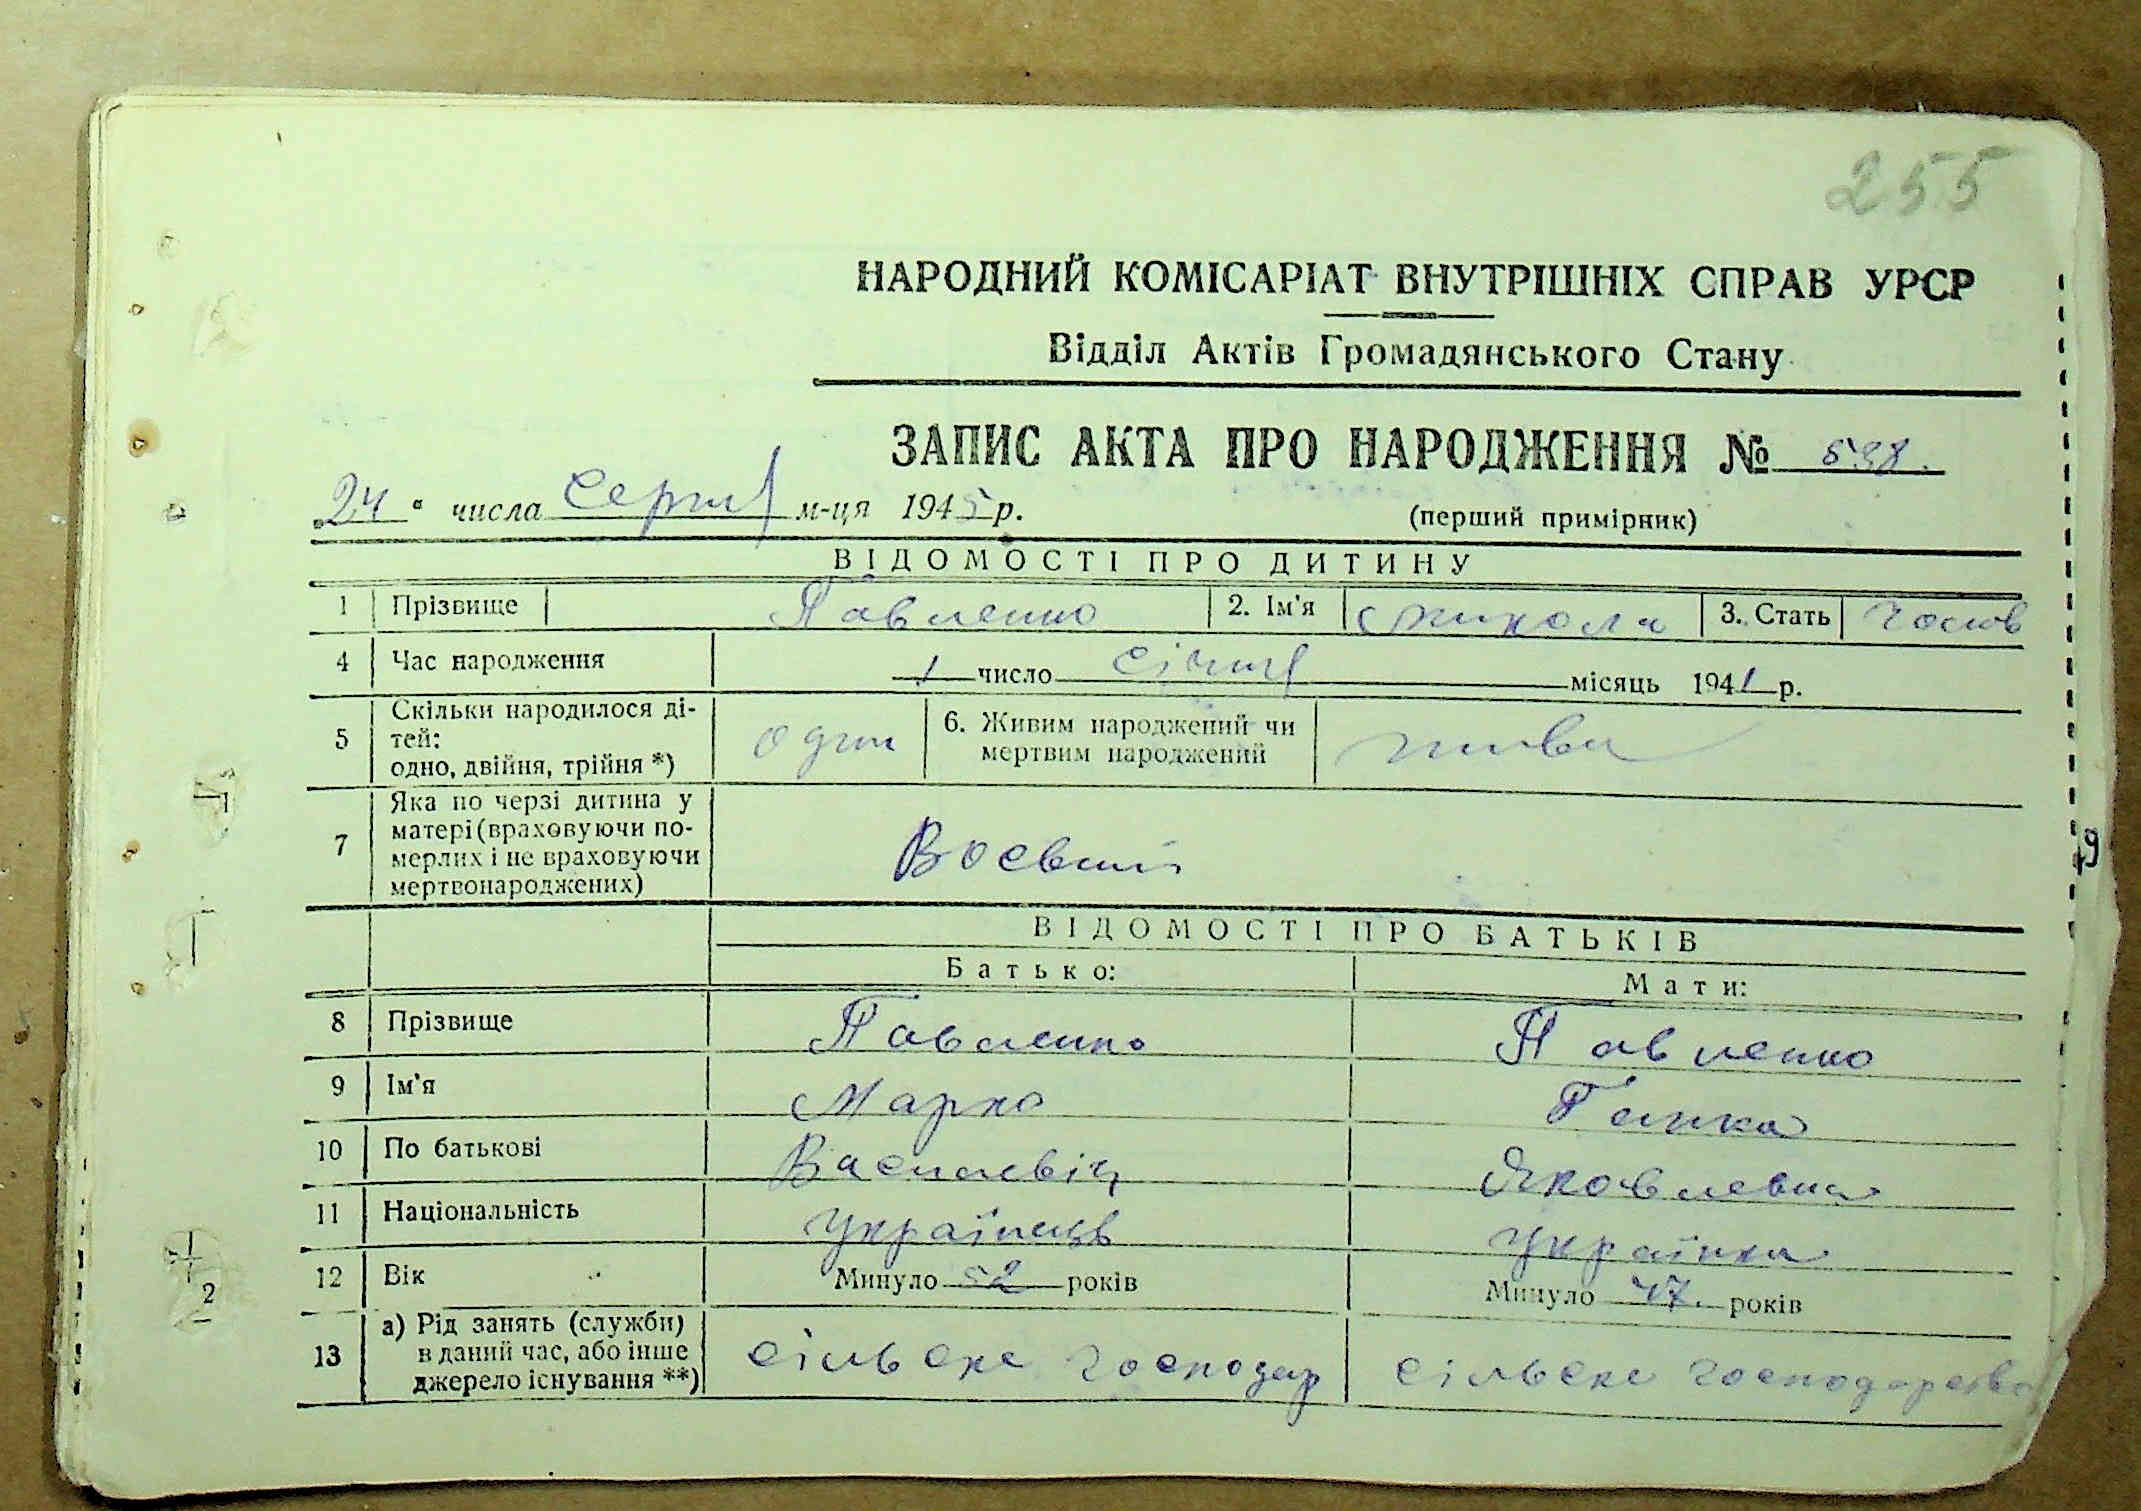 255
НАРОДНИЙ КОМІСАРІАТ ВНУТРІШНІХ СПРАВ УРСР
Відділ Актів Громадянського Стану
ЗАПИС АКТА ПРО НАРОДЖЕННЯ № 538.
24 " числа Серпня м-ця 1945 р.
(перший примірник)
ВІДОМОСТІ ПРО ДИТИНУ
1 Прізвище Павленко 2. Ім'я Микола 3. Стать чолов
4 Час народження 1 число Січня місяць 1941 р.
5 Скільки народилося ді-
тей:
одно, двійня, трійня *) один 6. Живим народжений чи
мертвим народжений живим
7 Яка по черзі дитина у
матері (враховуючи по-
мерлих і не враховуючи
мертвонароджених)
ВІДОМОСТІ ПРО БАТЬКІВ
Батько: Мати:
8 Прізвище Павленко Павленко
9 Ім'я Марко Ганка
10 По батькові Васильевіч Яковлевна
11 Національність українець українка
12 Вік Минуло 52 років Минуло 47. років
13 а) Рід занять (служби)
в даний час, або інше
джерело існування **) сільське господар сільске господарство
2
9